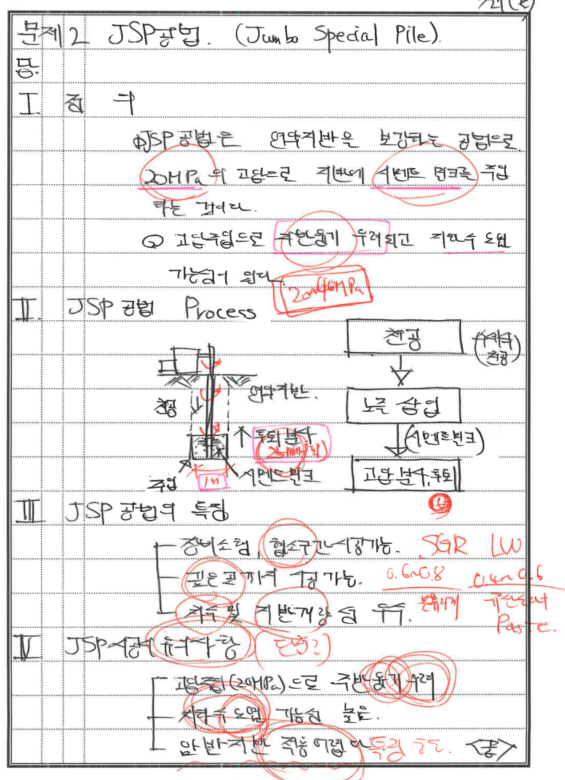 문제 2 JSP공법. (Jumbo Special Pile)
답)
I. 정의
① JSP공법은 연약지반을 보강하는 공법으로
20MPa의 고압으로 지반에 시멘트 밀크를 주입
하는 것이다.
② 고압주입으로 지반융기 우려되고 지하수 오염
가능성이 있다.
20~40MPa
II. JSP 공법 Process
천공
연약지반.
주입
1m
시멘트밀크
천공
천공
노즐 삽입
(시멘트밀크)
고압분사, 
III JSP 공법의 특징
장비소형, 협소구간 시공가능. SGR LW
깊은 곳까지 시공 가능. 0.6~0.8 0.4~0.6
차수 및 지반개량 우수.
IV JSP시공시 유의사항
고압주입(20MPa)으로 주변융기 우려
지하수 오염 가능성 높음.
암반지반 적용 어렵다 특징 <끝>